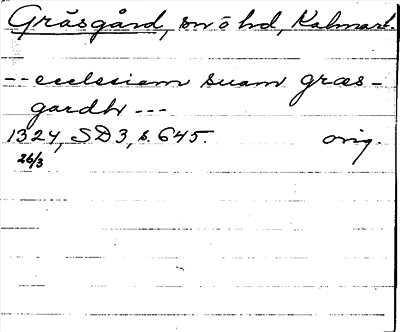 Gräsgård, sn ö hd, Kalmarl.
-- ecclesiam suam græs-
gardh ---
1324, SD3, s. 645. orig.
26/3